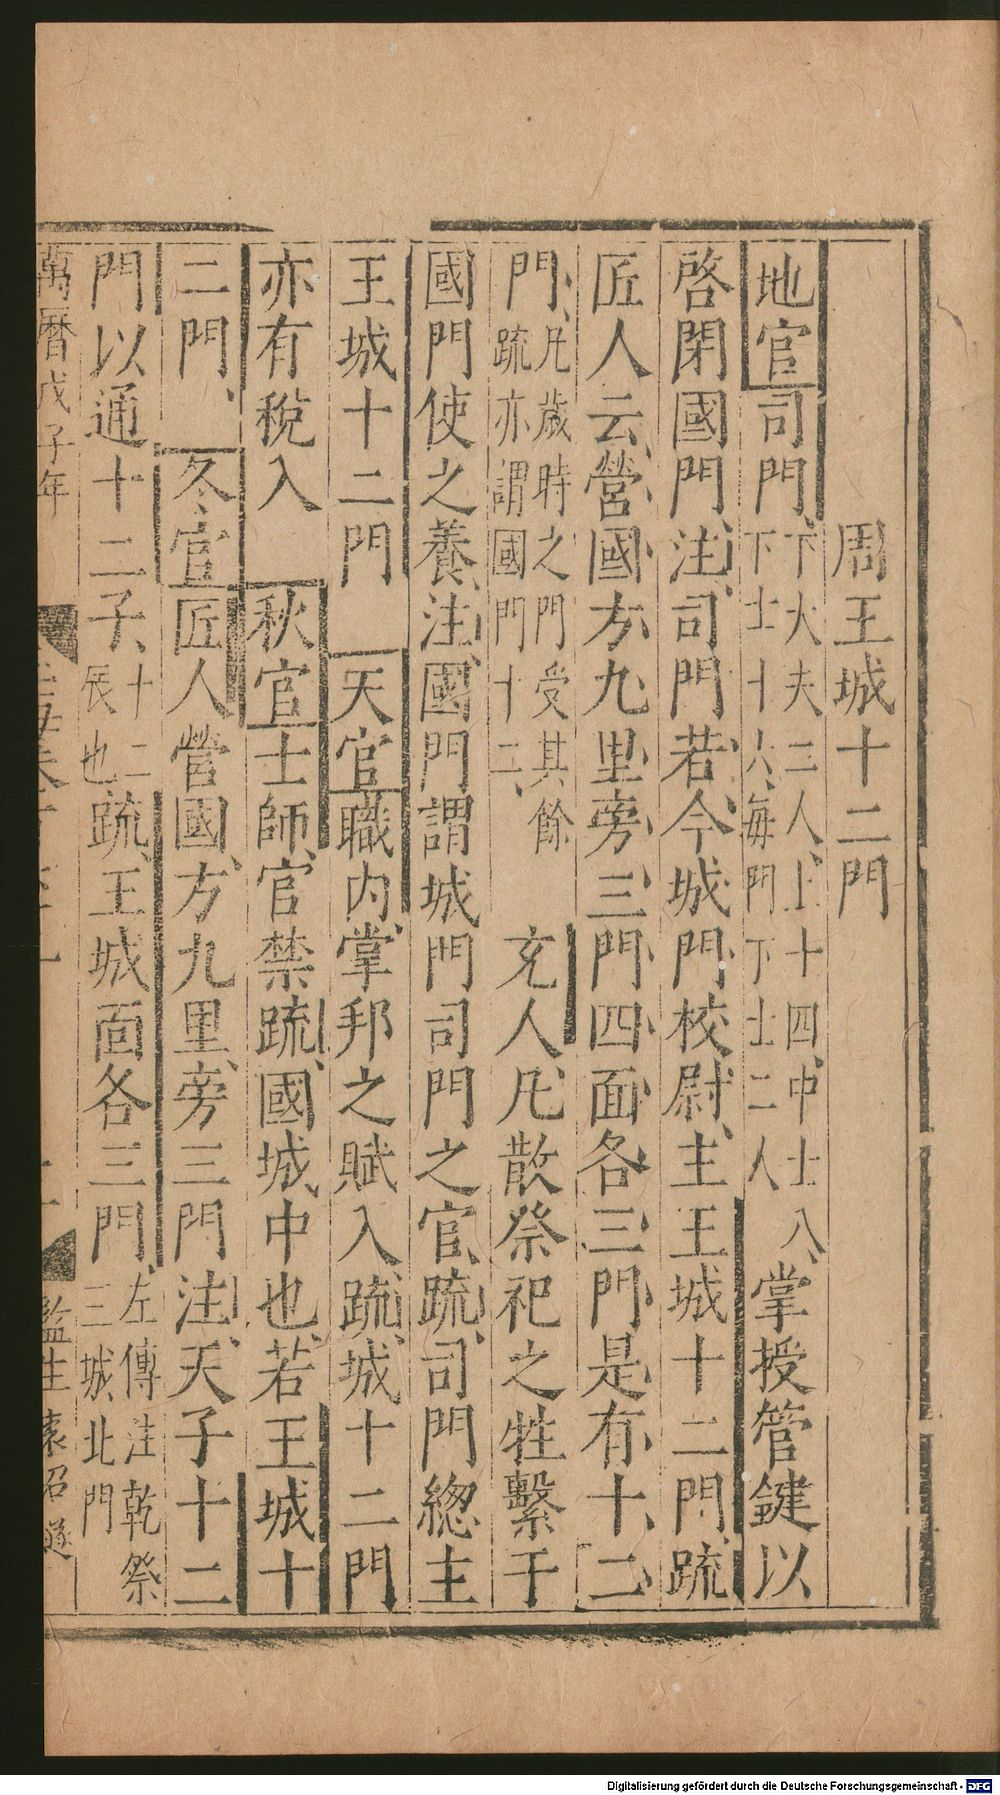 周王城十二門
地官司門、下大夫二人、上士四、中士八、
下士十六、每門下士二人掌授管鍵以
啓閉國門注、司門若今城門校尉、主王城十二門、疏
匠人云、營國方九里旁三門四面各三門是有十二
門、凡歲時之門受其餘
疏亦謂國門十二、充人、凡散祭祀之牲繫于
國門使之養、注、國門謂城門司門之官、疏、司門總主
王城十二門　天官職內、掌邦之賦入、疏、城十二門
亦有稅入　秋官士師、官禁疏、國城中也、若王城十
二門、　冬官匠人營國、方九里、旁三門注、天子十二
門以通十二子、十二
辰也疏、王城面各三門、左傳注乾祭
王城北門
萬曆戊子年
監生袁紹
Digitalisierung gefördert durch die Deutsche Forschungsgemeinschaft - DFG